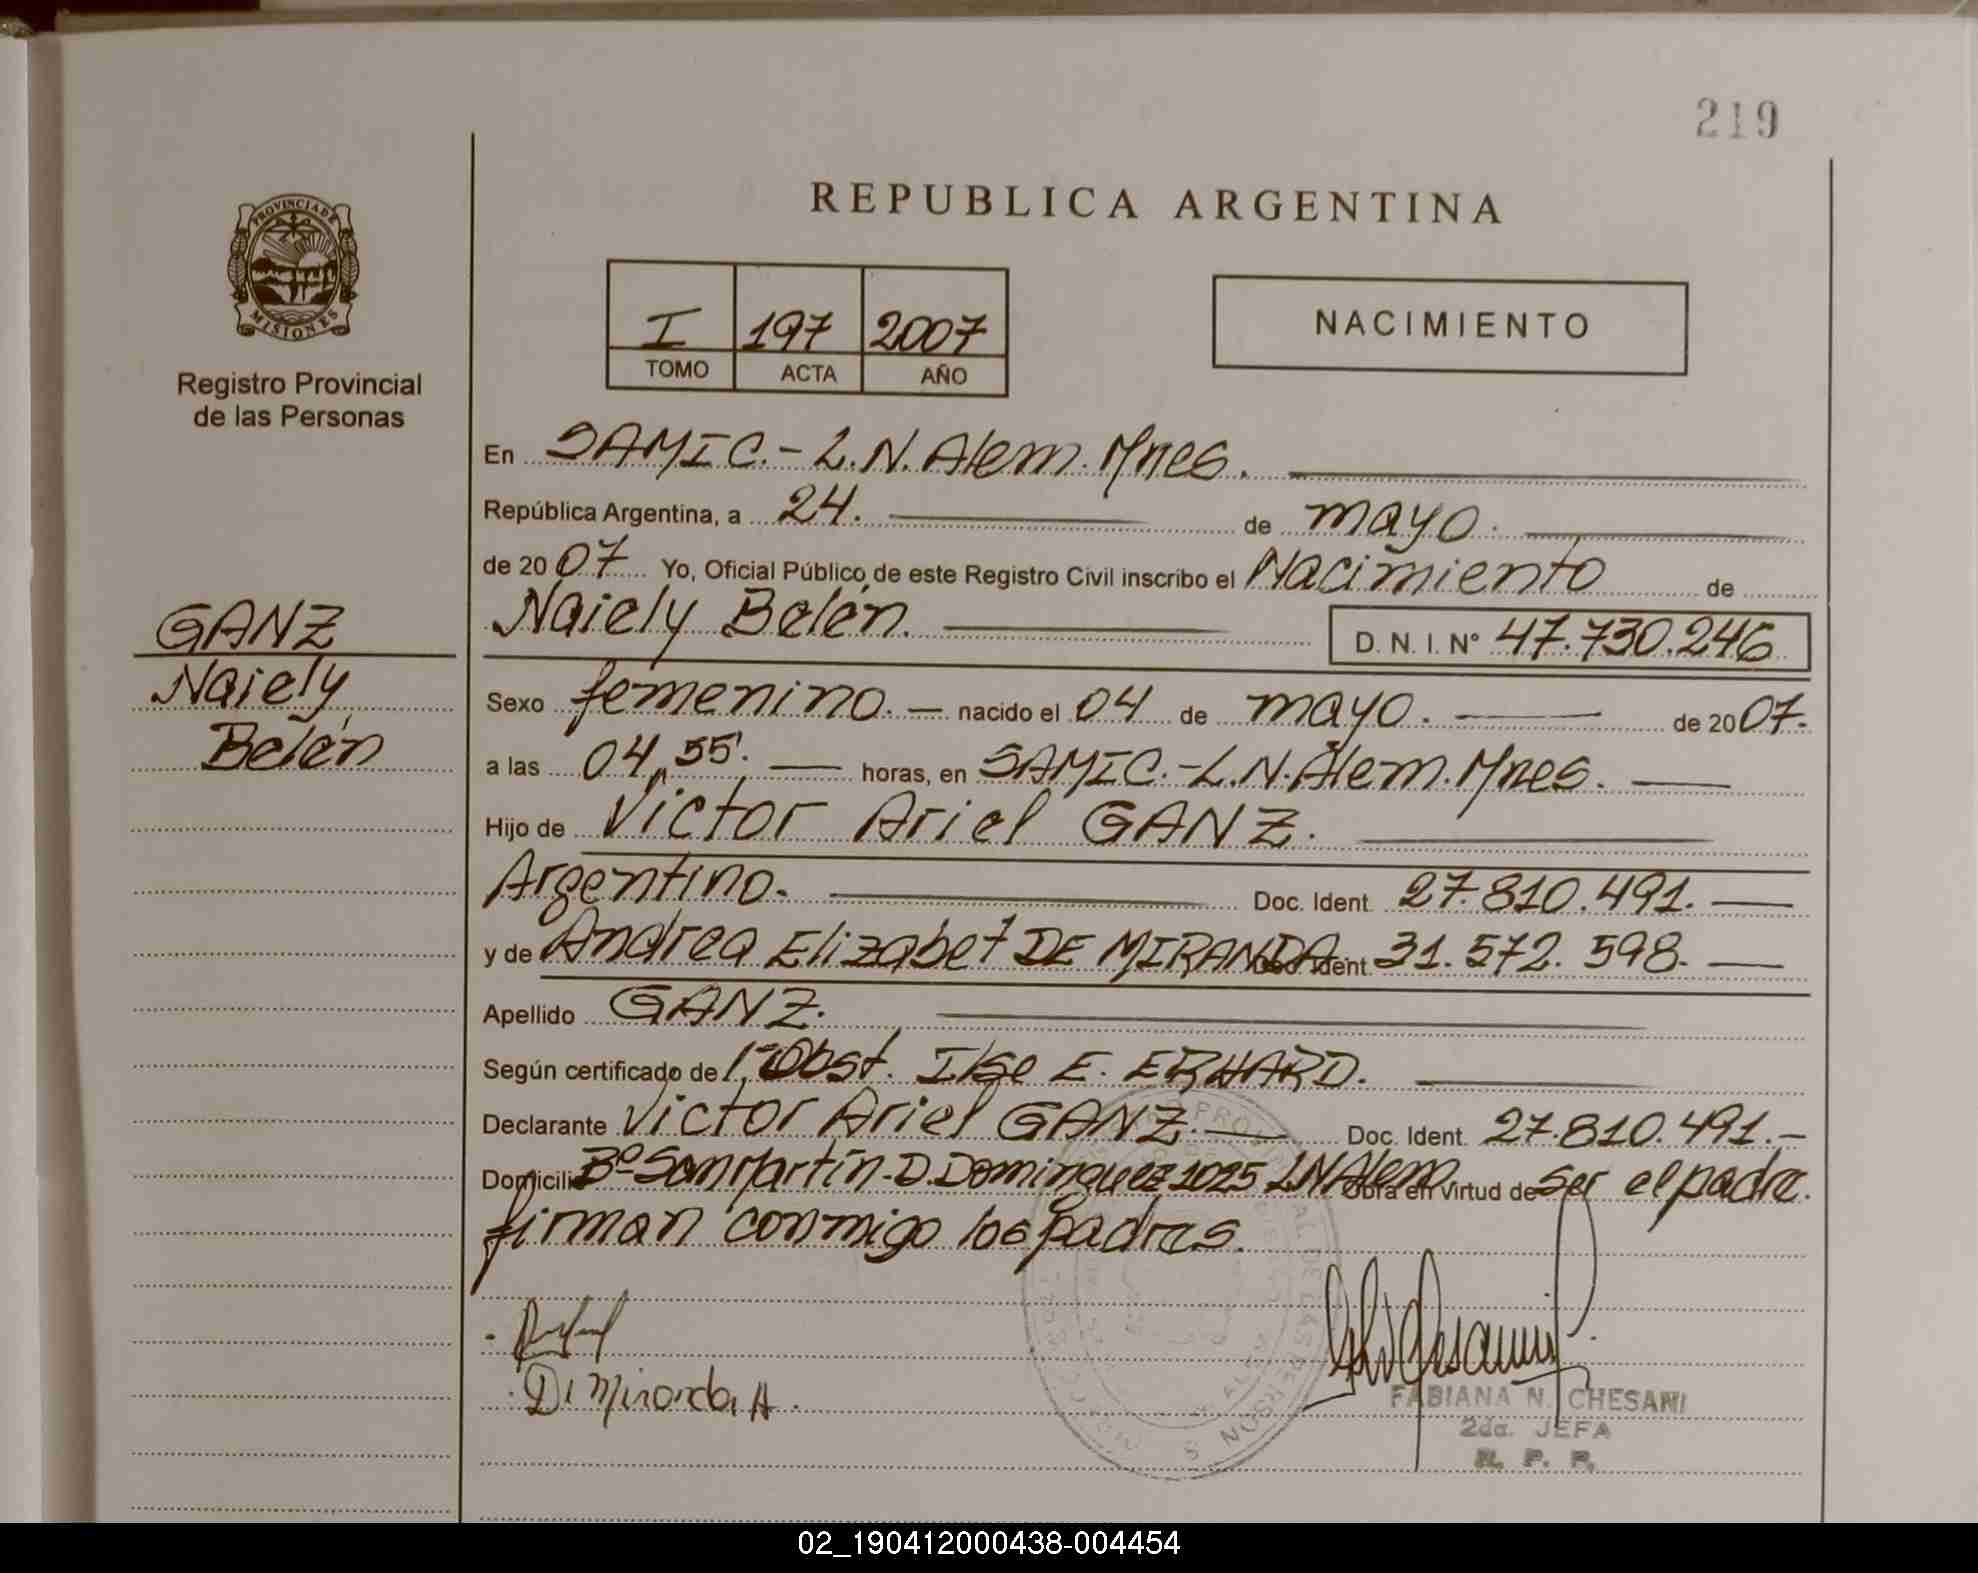 219
REPUBLICA ARGENTINA
PROVINCIA DE
MISIONES
Registro Provincial
de las Personas
I 197 2007
TOMO ACTA AÑO
NACIMIENTO
En SAMIC.- L.N. Alem. Mnes.
República Argentina, a 24. de mayo.
de 2007 Yo, Oficial Público de este Registro Civil inscribo el Nacimiento de
Naiely Belén. D. N. I. N° 47.730.246
GANZ
Naiely
Belén
Sexo femenino. nacido el 04 de mayo. de 2007.
a las 04,55'. horas, en SAMIC.-L.N. Alem. Mnes.
Hijo de Victor Ariel GANZ.
Argentino. Doc. Ident. 27.810.491.
y de Andrea Elizabet DE MIRANDA. Doc. Ident. 31.572.598.
Apellido GANZ.
Según certificado de Obst. Ilse E. ERHARD.
Declarante Victor Ariel GANZ. Doc. Ident. 27.810.491.-
Domicilio Bº San Martín-D.Dominguez 1025 LNAlem. Obra en virtud de ser el padre.
firman conmigo los padres.
De Miranda A.
FABIANA N. CHESANI
2da. JEFA
R. P. P.
02_190412000438-004454